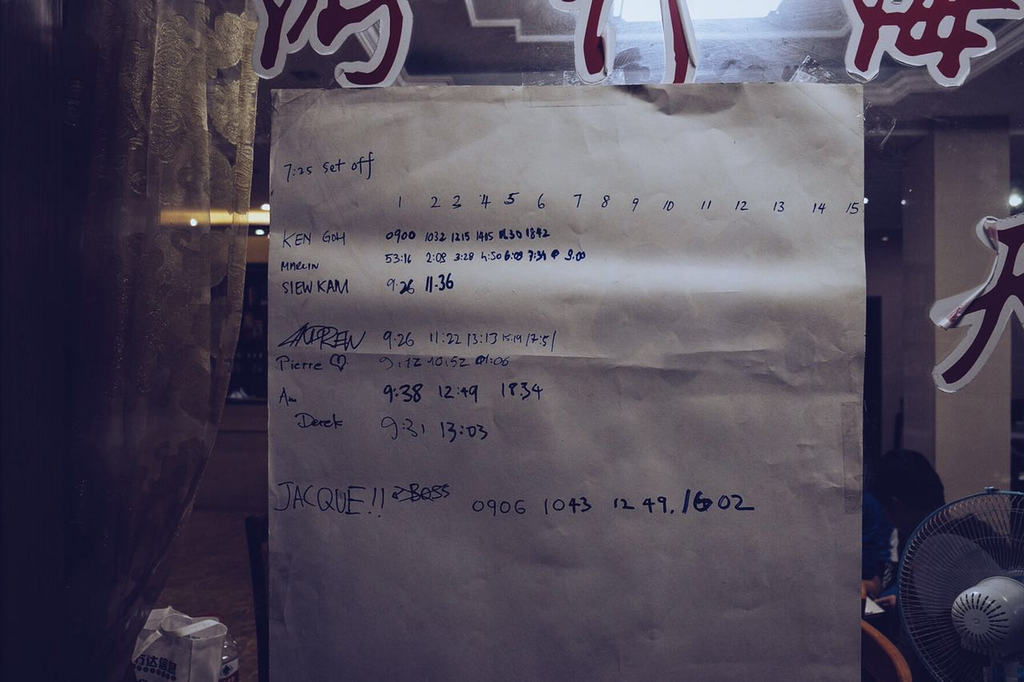 7:25 set off
1 2 3 4 5 6 7 8 9 10 11 12 13 14 15
KEN GOH 0900 1032 1215 1415 1842
MARCIN 53:16 2:08 3:28 4:50 6:09 7:34 9:00
SIEW KAM 9:26 11.36
ANDREW 9:26 11:22 13:13 15:19 17:51
Pierre ♡ 9:12 10:52
9:38 12:49 18.34
Derek 9:31 13:03
JACQUE!! BOSS 0906 1043 1249. 1602
万达信息